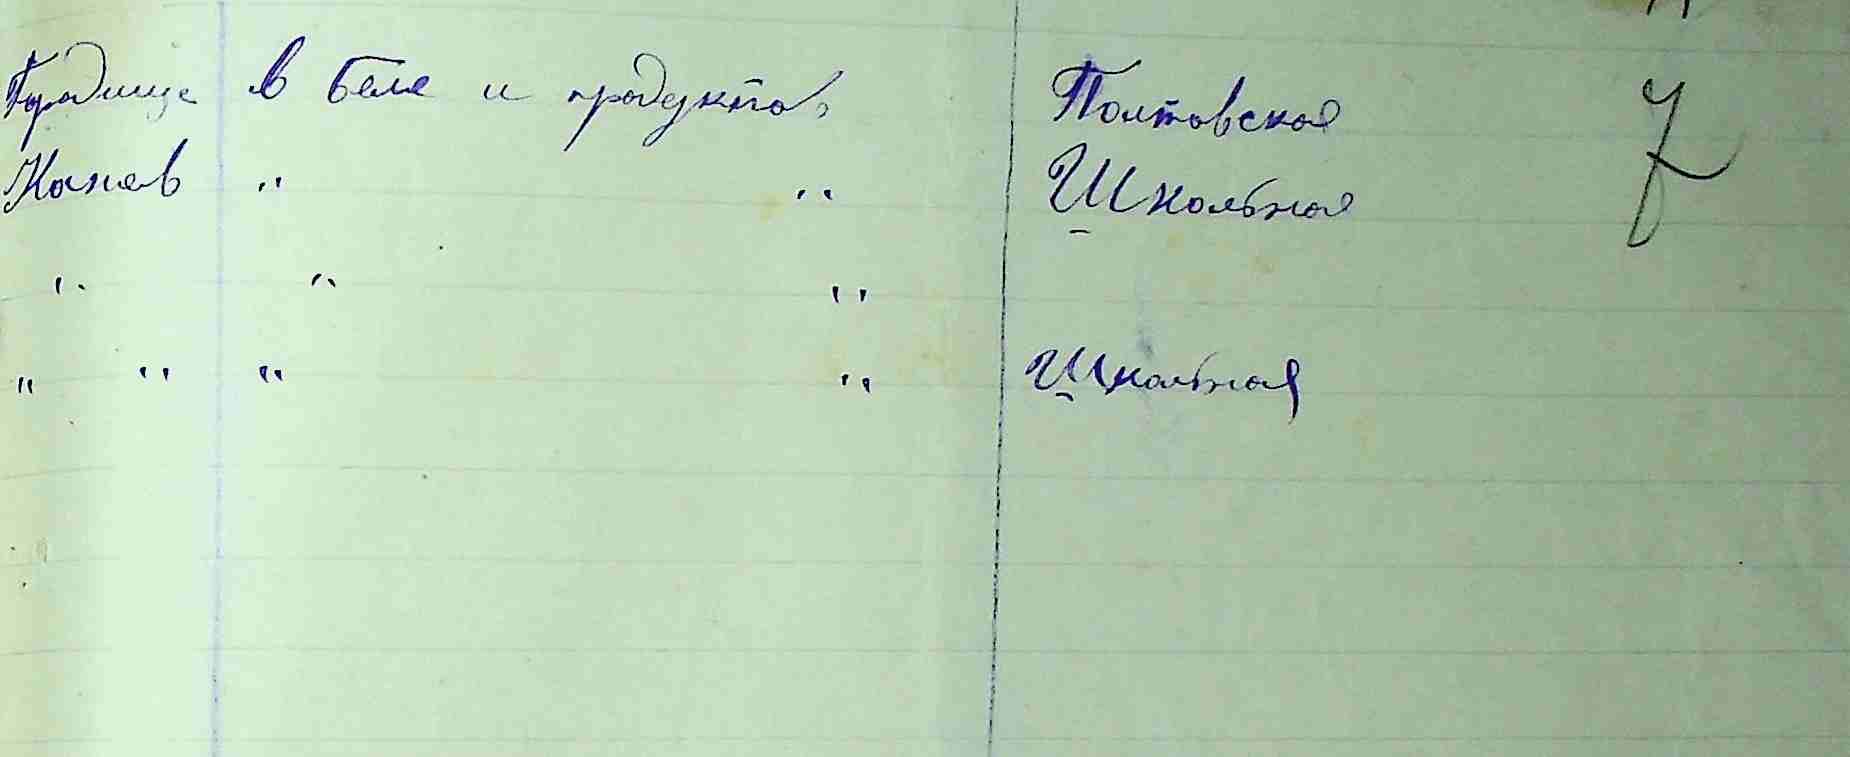 Городище в белье и продуктов Полтовская
Канев " " Школьная
" " "
" " " " Школьная